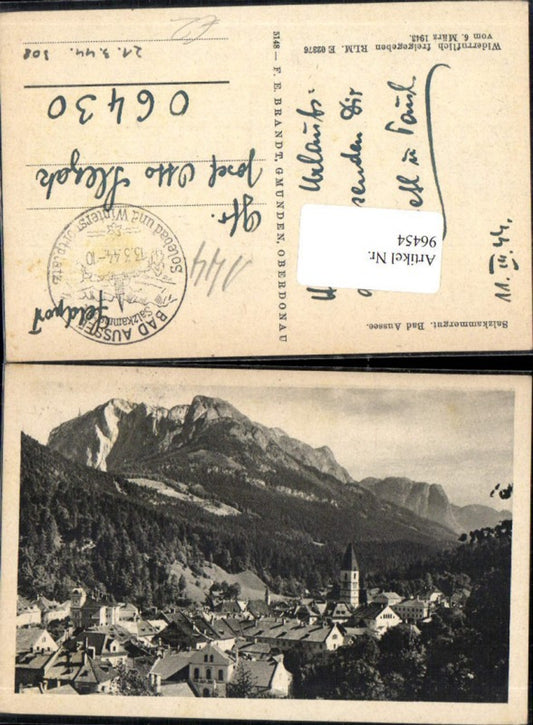 11. III. 44.
Urlaubs-
senden Dir
Salzkammergut. Bad Aussee.
5148 — F. E. BRANDT, GMUNDEN, OBERDONAU
Widerruflich freigegeben RLM. E 02376
vom 6. März 1943.
Feldpost
BAD AUSSEE
Salzkammergut
13.3.44.-10
Solebad und Wintersportplatz
144
Gfr.
Josef Otto
06430
21.3.44. 308
Artikel Nr.
96454